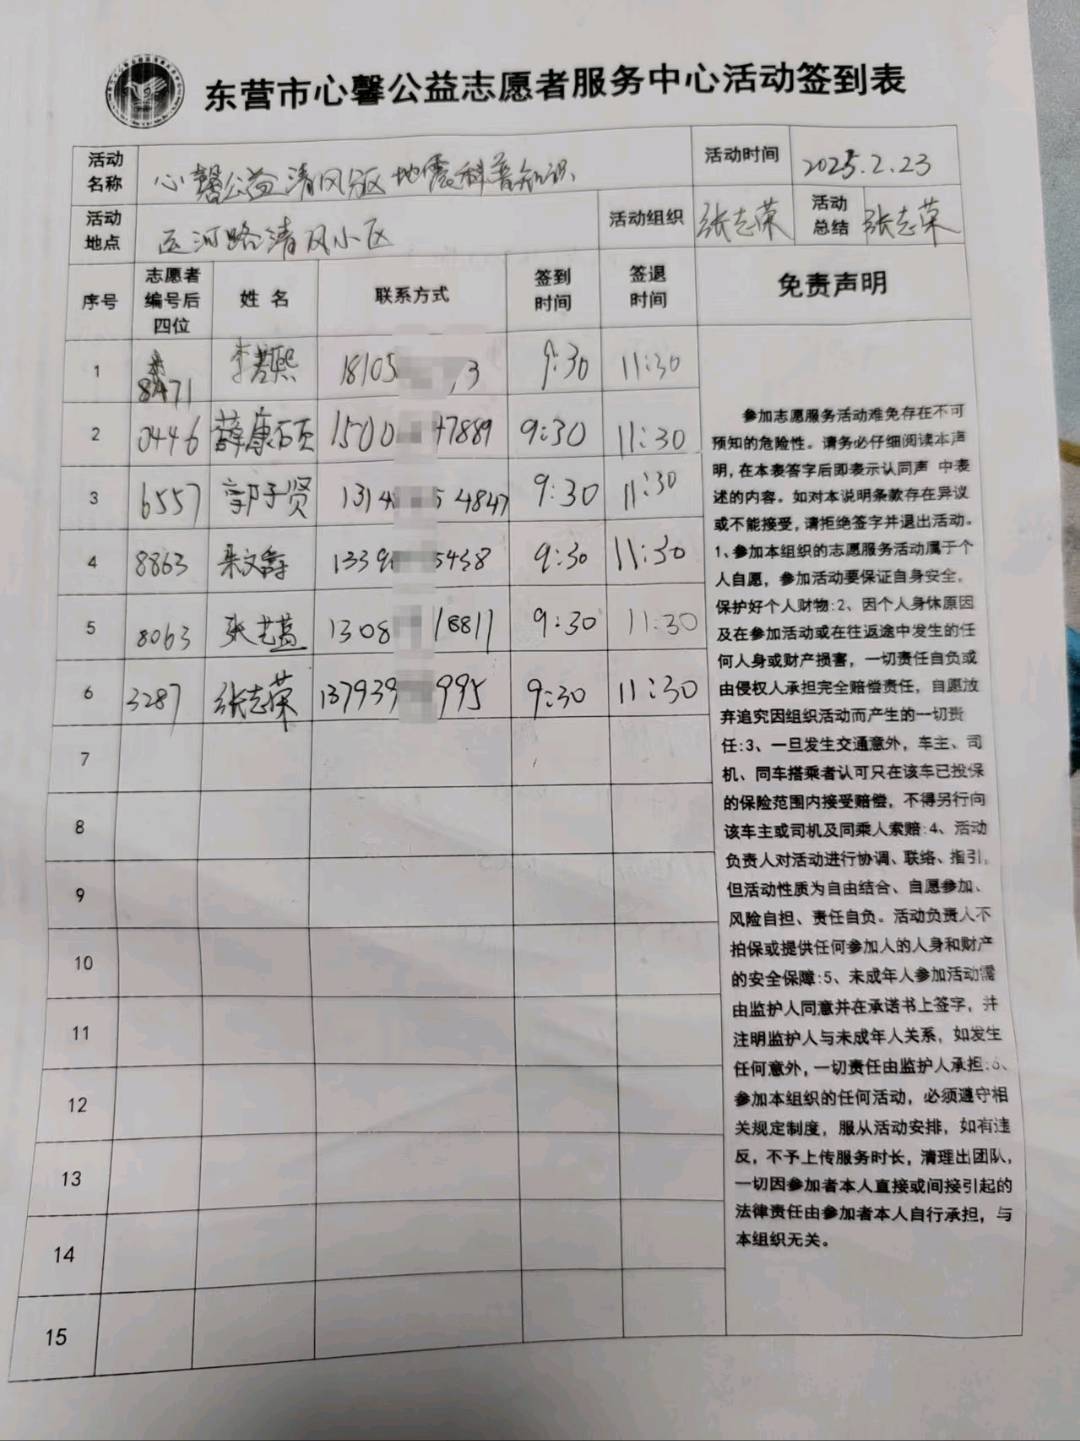 东营市心馨公益志愿者服务中心活动签到表
活动名称 心馨公益清风驿地震科普知识 活动时间 2025.2.23
活动地点 运河路清风小区 活动组织 张志荣 活动总结 张志荣
序号 志愿者编号后四位 姓名 联系方式 签到时间 签退时间 免责声明
1 8471 李若熙 18105 3 9:30 11:30
2 0446 薛康硕 1500 47889 9:30 11:30
3 6557 郭子贤 1314 5 4847 9:30 11:30
4 8863 9:30 11:30
5 8063 张艺菡 1308 18817 9:30 11:30
6 3287 张志荣 137939 995 9:30 11:30
7
8
9
10
11
12
13
14
15
参加志愿服务活动难免存在不可
预知的危险性。请务必仔细阅读本声
明,在本表签字后即表示认同声 中表
述的内容。如对本说明条款存在异议
或不能接受,请拒绝签字并退出活动。
1、参加本组织的志愿服务活动属于个
人自愿，参加活动要保证自身安全,
保护好个人财物:2、因个人身体原因
及在参加活动或在往返途中发生的任
何人身或财产损害，一切责任自负或
由侵权人承担完全赔偿责任，自愿放
弃追究因组织活动而产生的一切责
任:3、一旦发生交通意外，车主、司
机、同车搭乘者认可只在该车已投保
的保险范围内接受赔偿，不得另行向
该车主或司机及同乘人索赔:4、活动
负责人对活动进行协调、联络、指引,
但活动性质为自由结合、自愿参加、
风险自担、责任自负。活动负责人不
拍保或提供任何参加人的人身和财产
的安全保障:5、未成年人参加活动需
由监护人同意并在承诺书上签字，并
注明监护人与未成年人关系，如发生
任何意外,一切责任由监护人承担:6、
参加本组织的任何活动，必须遵守相
关规定制度，服从活动安排，如有违
反，不予上传服务时长，清理出团队,
一切因参加者本人直接或间接引起的
法律责任由参加者本人自行承担，与
本组织无关。